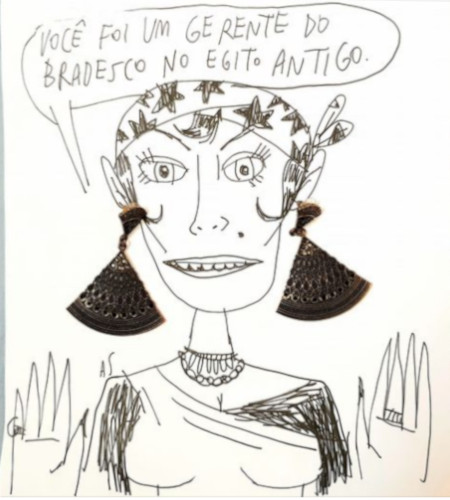 VOCÊ FOI UM GERENTE DO
BRADESCO NO EGITO ANTIGO.
AS